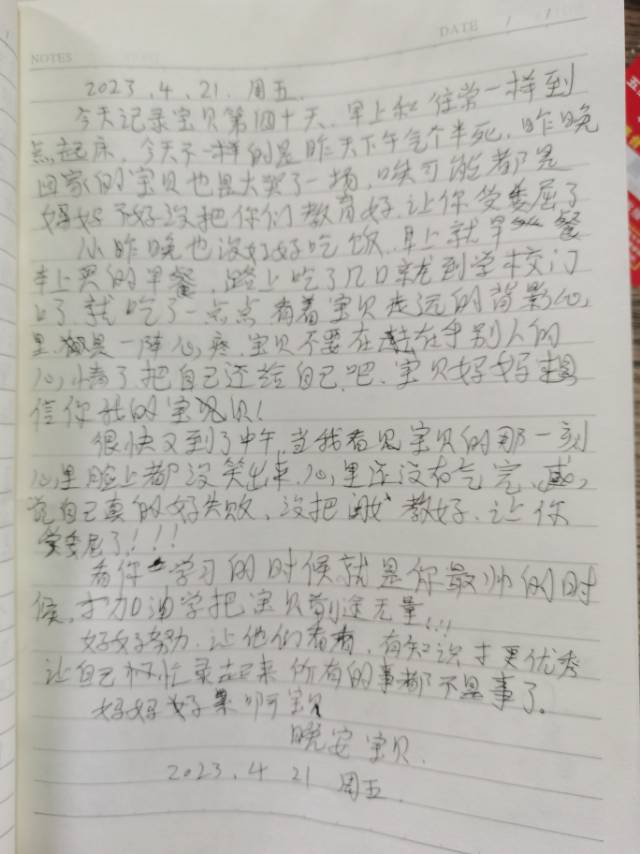 NOTES
DATE / /
2023.4.21.周五.
今天记录宝贝第四十天.早上和往常一样到
点起床.今天不一样的是昨天下午气个半死.昨晚
回家的宝贝也是大哭了一场,唉可能都是
妈妈不好没把你们教育好.让你受委屈了
昨晚也没好好吃饭.早上就早餐
车上买的早餐.路上吃了几口就到学校门
口了就吃了一点点看着宝贝走远的背影心
里都是一阵心疼.宝贝不要在在乎别人的
心情了把自己还给自己吧.宝贝妈妈相
信你我的宝贝!
很快又到了中午.当我看见宝贝的那一刻
心里脸上都没笑出来,心里还没有气完.感
觉自己真的好失败.没把教好.让你
受委屈了!!!
看你学习的时候就是你最帅的时
候.加油学把宝贝前途无量!!!
好好努力.让他们看看.有知识才更优秀
让自己忙录起来所有的事都不是事了.
妈妈好累啊宝贝
晚安宝贝.
2023.4 21 周五.